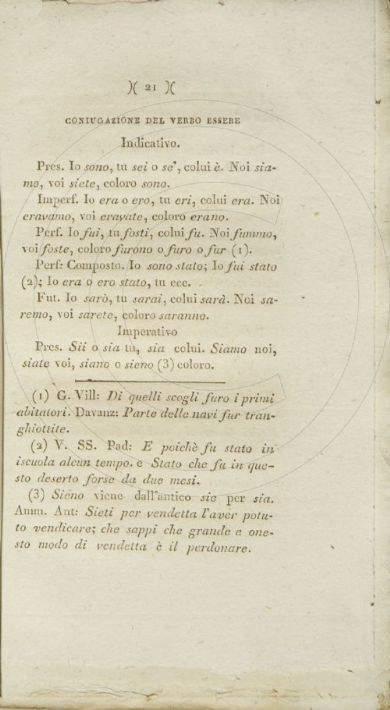 )( 21 )(
CONIUGAZIONE DEL VERBO ESSERE
Indicativo.
Pres. Io sono, tu sei o se', colui è. Noi sia-
mo, voi siete, coloro sono.
Imperf. Io era o ero, tu eri, colui era. Noi
eravamo, voi eravate, coloro erano.
Perf. Io fui, tu fosti, colui fu. Noi fummo,
voi foste, coloro furono o furo o fur (1).
Perf: Composto. Io sono stato; Io fui stato
(2); Io era o ero stato, tu ecc.
Fut. Io sarò, tu sarai, colui sarà. Noi sa-
remo, voi sarete, coloro saranno.
Imperativo
Pres. Sii o sia tu, sia colui. Siamo noi,
siate voi, siano o sieno (3) coloro.
(1) G. Vill: Di quelli scogli furo i primi
abitatori. Davanz: Parte delle navi fur tran-
ghiottite.
(2) V. SS. Pad: E poichè fu stato in
iscuola alcun tempo. e Stato che fu in que-
sto deserto forse da due mesi.
(3) Sieno viene dall'antico sie per sia.
Amm. Ant: Sieti per vendetta l'aver potu-
to vendicare; che sappi che grande e one-
sto modo di vendetta è il perdonare.